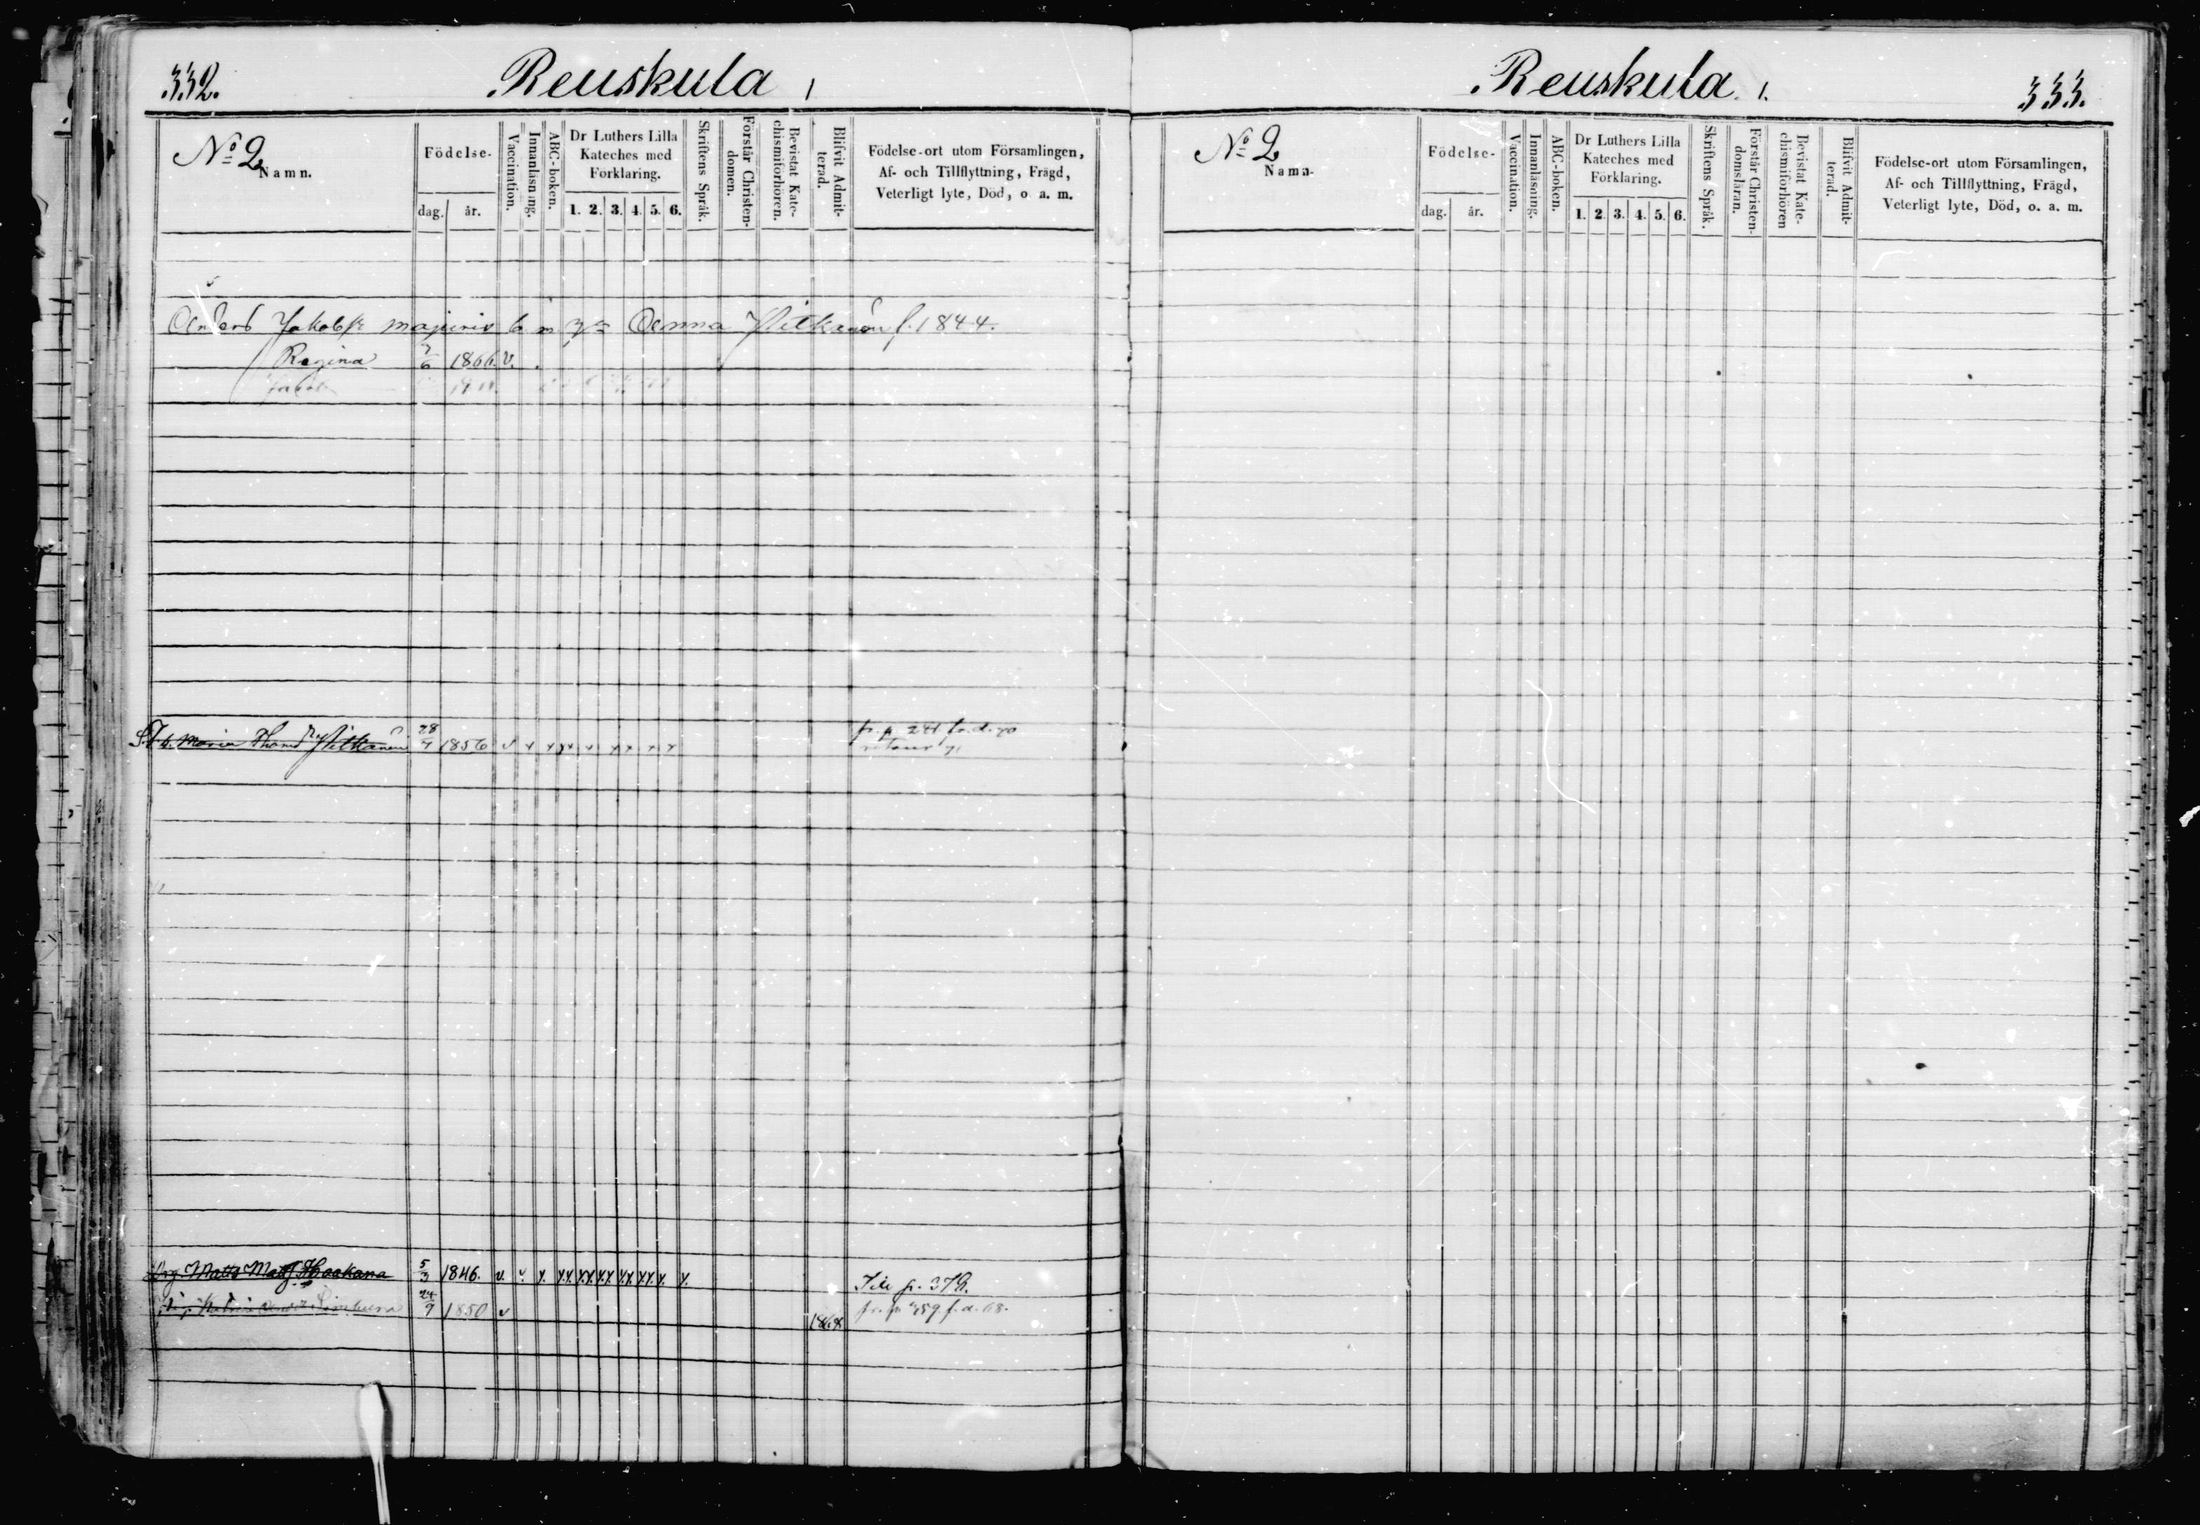 332.
Reuskula 1
No 2
Namn.
Födelse-
dag. år.
Vaccination.
Innanläsning.
ABC-boken.
Dr Luthers Lilla
Kateches med
Förklaring.
1. 2. 3. 4. 5. 6.
Skriftens Språk.
Förstår Christen-
domen.
Bevistat Kate-
chismiförhören.
Blifvit Admit-
terad.
Födelse-ort utom Församlingen,
Af- och Tillflyttning, Frägd,
Veterligt lyte, Död, o. a. m.
Anders Jakobss Pitkänen f. 1844.
Regina 7/6 1866. v.
Jakob
Maria Thomdr Pitkänen 28/7 1856 v
fr. p 241 fr. d. 70
retour 71
Drg. Matts Matss Haakana 5/3 1846. v.
Till p. 378.
24/9 1850 v 1868
fr. p 459 f. d. 68.
Reuskula 1.
333.
No 2
Namn-
Födelse-
dag. år.
Vaccination.
Innanläsning.
ABC-boken.
Dr Luthers Lilla
Kateches med
Förklaring.
1. 2. 3. 4. 5. 6.
Skriftens Språk.
Förstår Christen-
domsläran.
Bevistat Kate-
chismiförhören
Blifvit Admit-
terad.
Födelse-ort utom Församlingen,
Af- och Tillflyttning, Frägd,
Veterligt lyte, Död, o. a. m.